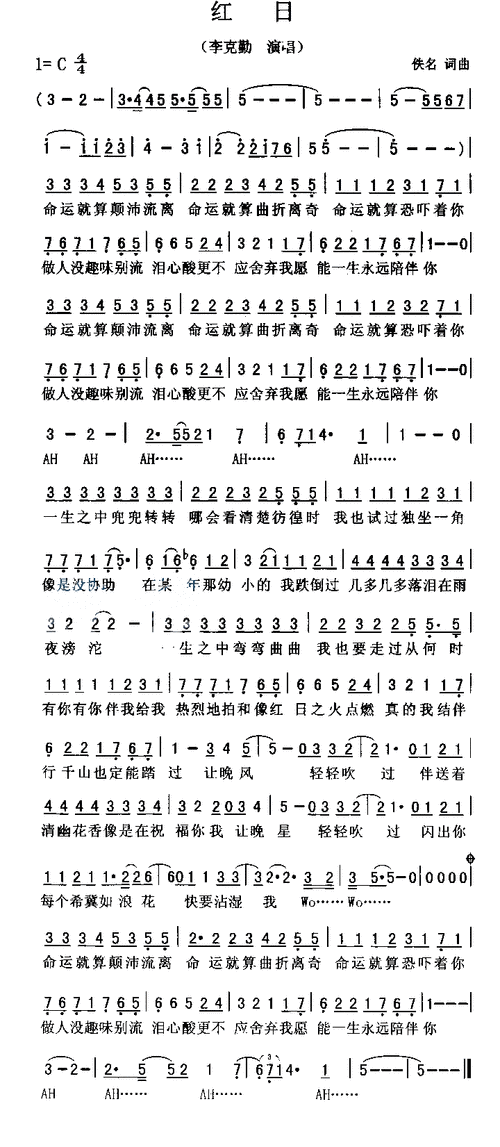 红 日
（李克勤 演唱）
1=C 4/4
佚名 词曲
(3-2-|3·445 5·555|5---|5---|5-5567|
i-i i 2 3|4-3i|2 22i76|55--|5---)|
3 3 3 4 5 3 5 5|2 2 2 3 4 2 5 5|1 1 1 2 3 1 7 1|
命运就算颠沛流离 命运就算曲折离奇 命运就算恐吓着你
7 6 7 1 7 6 5|6 6 5 2 4|3 2 1 1 7|6 2 2 1 7 6 7|1--0|
做人没趣味别流 泪心酸更不 应舍弃我愿 能一生永远陪伴你
3 3 3 4 5 3 5 5|2 2 2 3 4 2 5 5|1 1 1 2 3 2 7 1|
命运就算颠沛流离 命运就算曲折离奇 命运就算恐吓着你
7 6 7 1 7 6 5|6 6 5 2 4|3 2 1 1 7|6 2 2 1 7 6 7|1--0|
做人没趣味别流 泪心酸更不 应舍弃我愿 能一生永远陪伴你
3-2-|2·5521 7|6 714· 1|1--0|
AH AH AH…… AH…… AH……
3 3 3 3 3 3 3 3|2 2 3 2 2 2 5 5|1 1 1 1 1 2 3 1|
一生之中兜兜转转 哪会看清楚彷徨时 我也试过独坐一角
像是没协助 在某 年那幼 小的 我跌倒过 几多几多落泪在雨
3 2 22-|3 3 3 3 3 3 3 3|2 2 3 2 2 5·5|
夜滂沱 一生之中弯弯曲曲 我也要走过从何 时
1 1 1 1 1 2 3 1|7 7 7 1 7 6 5|6 6 5 2 4|3 2 1 1 7|
有你有你伴我给我 热烈地拍和像红 日之火点燃 真的我结伴
6 2 2 1 7 6 7|1-3 4 5|5-0332|21·0121|
行千山也定能踏 过 让晚风 轻轻吹 过 伴送着
4 4 4 4 3 3 3 4|3 2 2 0 3 4|5-0332|21·0121|
清幽花香像是在祝 福你我 让晚 星 轻轻吹 过 闪出你
每个希冀如 浪花 快要沾湿 我 Wo……Wo……
3 3 3 4 5 3 5 5|2·2 2 3 4 2 5 5|1 1 1 2 3 1 7 1|
命运就算颠沛流离 命 运就算曲折离奇 命运就算恐吓着你
7 6 7 1 7 6 5|6 6 5 2 4|3 2 1 1 7|6 2 2 1 7 6 7|1---|
做人没趣味别流 泪心酸更不 应舍弃我愿 能一生永远陪伴你
3-2-|2·5 52 1 7|6714· 1|5---|5---‖
AH AH…… AH…… AH……